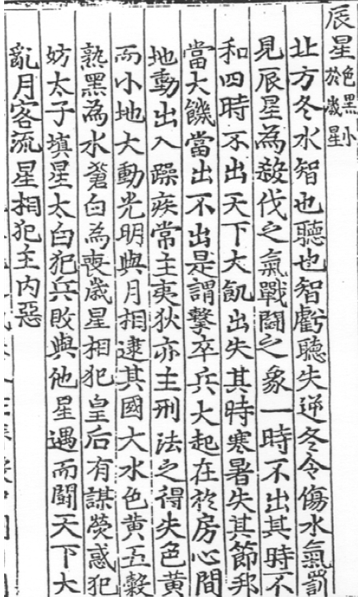 辰星色黑小於歲星
北方冬水智也聽也智虧聽失逆冬令傷水氣罰
見辰星為殺伐之氣戰鬪之象一時不出其時不
和四時不出天下大飢出失其時寒暑失其節邦
當大饑當出不出是謂擊卒兵大起在於房心間
地動出入躁疾常主夷狄亦主刑法之得失色黃
而小地大動光明與月相逮其國大水色黃五穀
熟黑為水蒼白為喪歲星相犯皇后有謀熒惑犯
妨太子填星太白犯兵敗與他星遇而鬪天下大
亂月客流星相犯主內惡